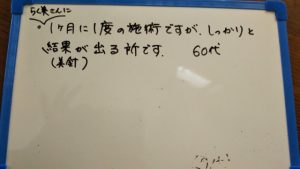 らく美さんに
・1ヶ月に1度の施術ですが、しっかりと
結果が出る所です。 60代
(美針)